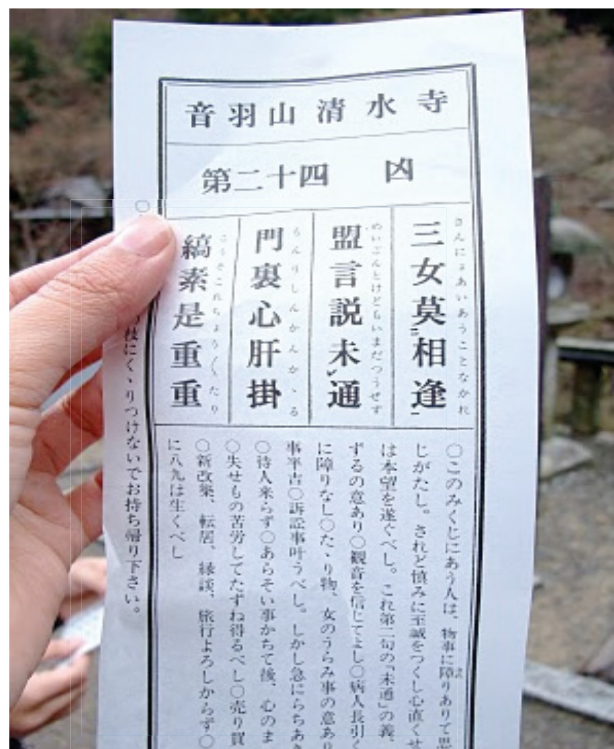 音羽山清水寺
第二十四 凶
三女莫相逢
さんによあいあうことなかれ
盟言説未通
めいごんとけどもいまだつうせず
門裏心肝掛
もんりしんかんかゝる
縞素是重重
こうそこれちょう〱たり
○このみくじにあう人は、物事に障りありて思
じがたし。されど慎みに至誠をつくし心直くせ
は本望を遂ぐべし。これ第二句の「未通」の義、
ずるの意あり○観音を信じてよし○病人長引く
に障りなし○たゝり物、女のうらみ事の意あり
事半吉○訴訟事叶うべし。しかし急にらちあき
○待人来らず○あらそい事かちて後、心のま
○失せもの苦労してたずね得るべし○売り買
○新改築、転居、縁談、旅行よろしからず○
に八九は生くべし
枝にくゝりつけないでお持ち帰り下さい。